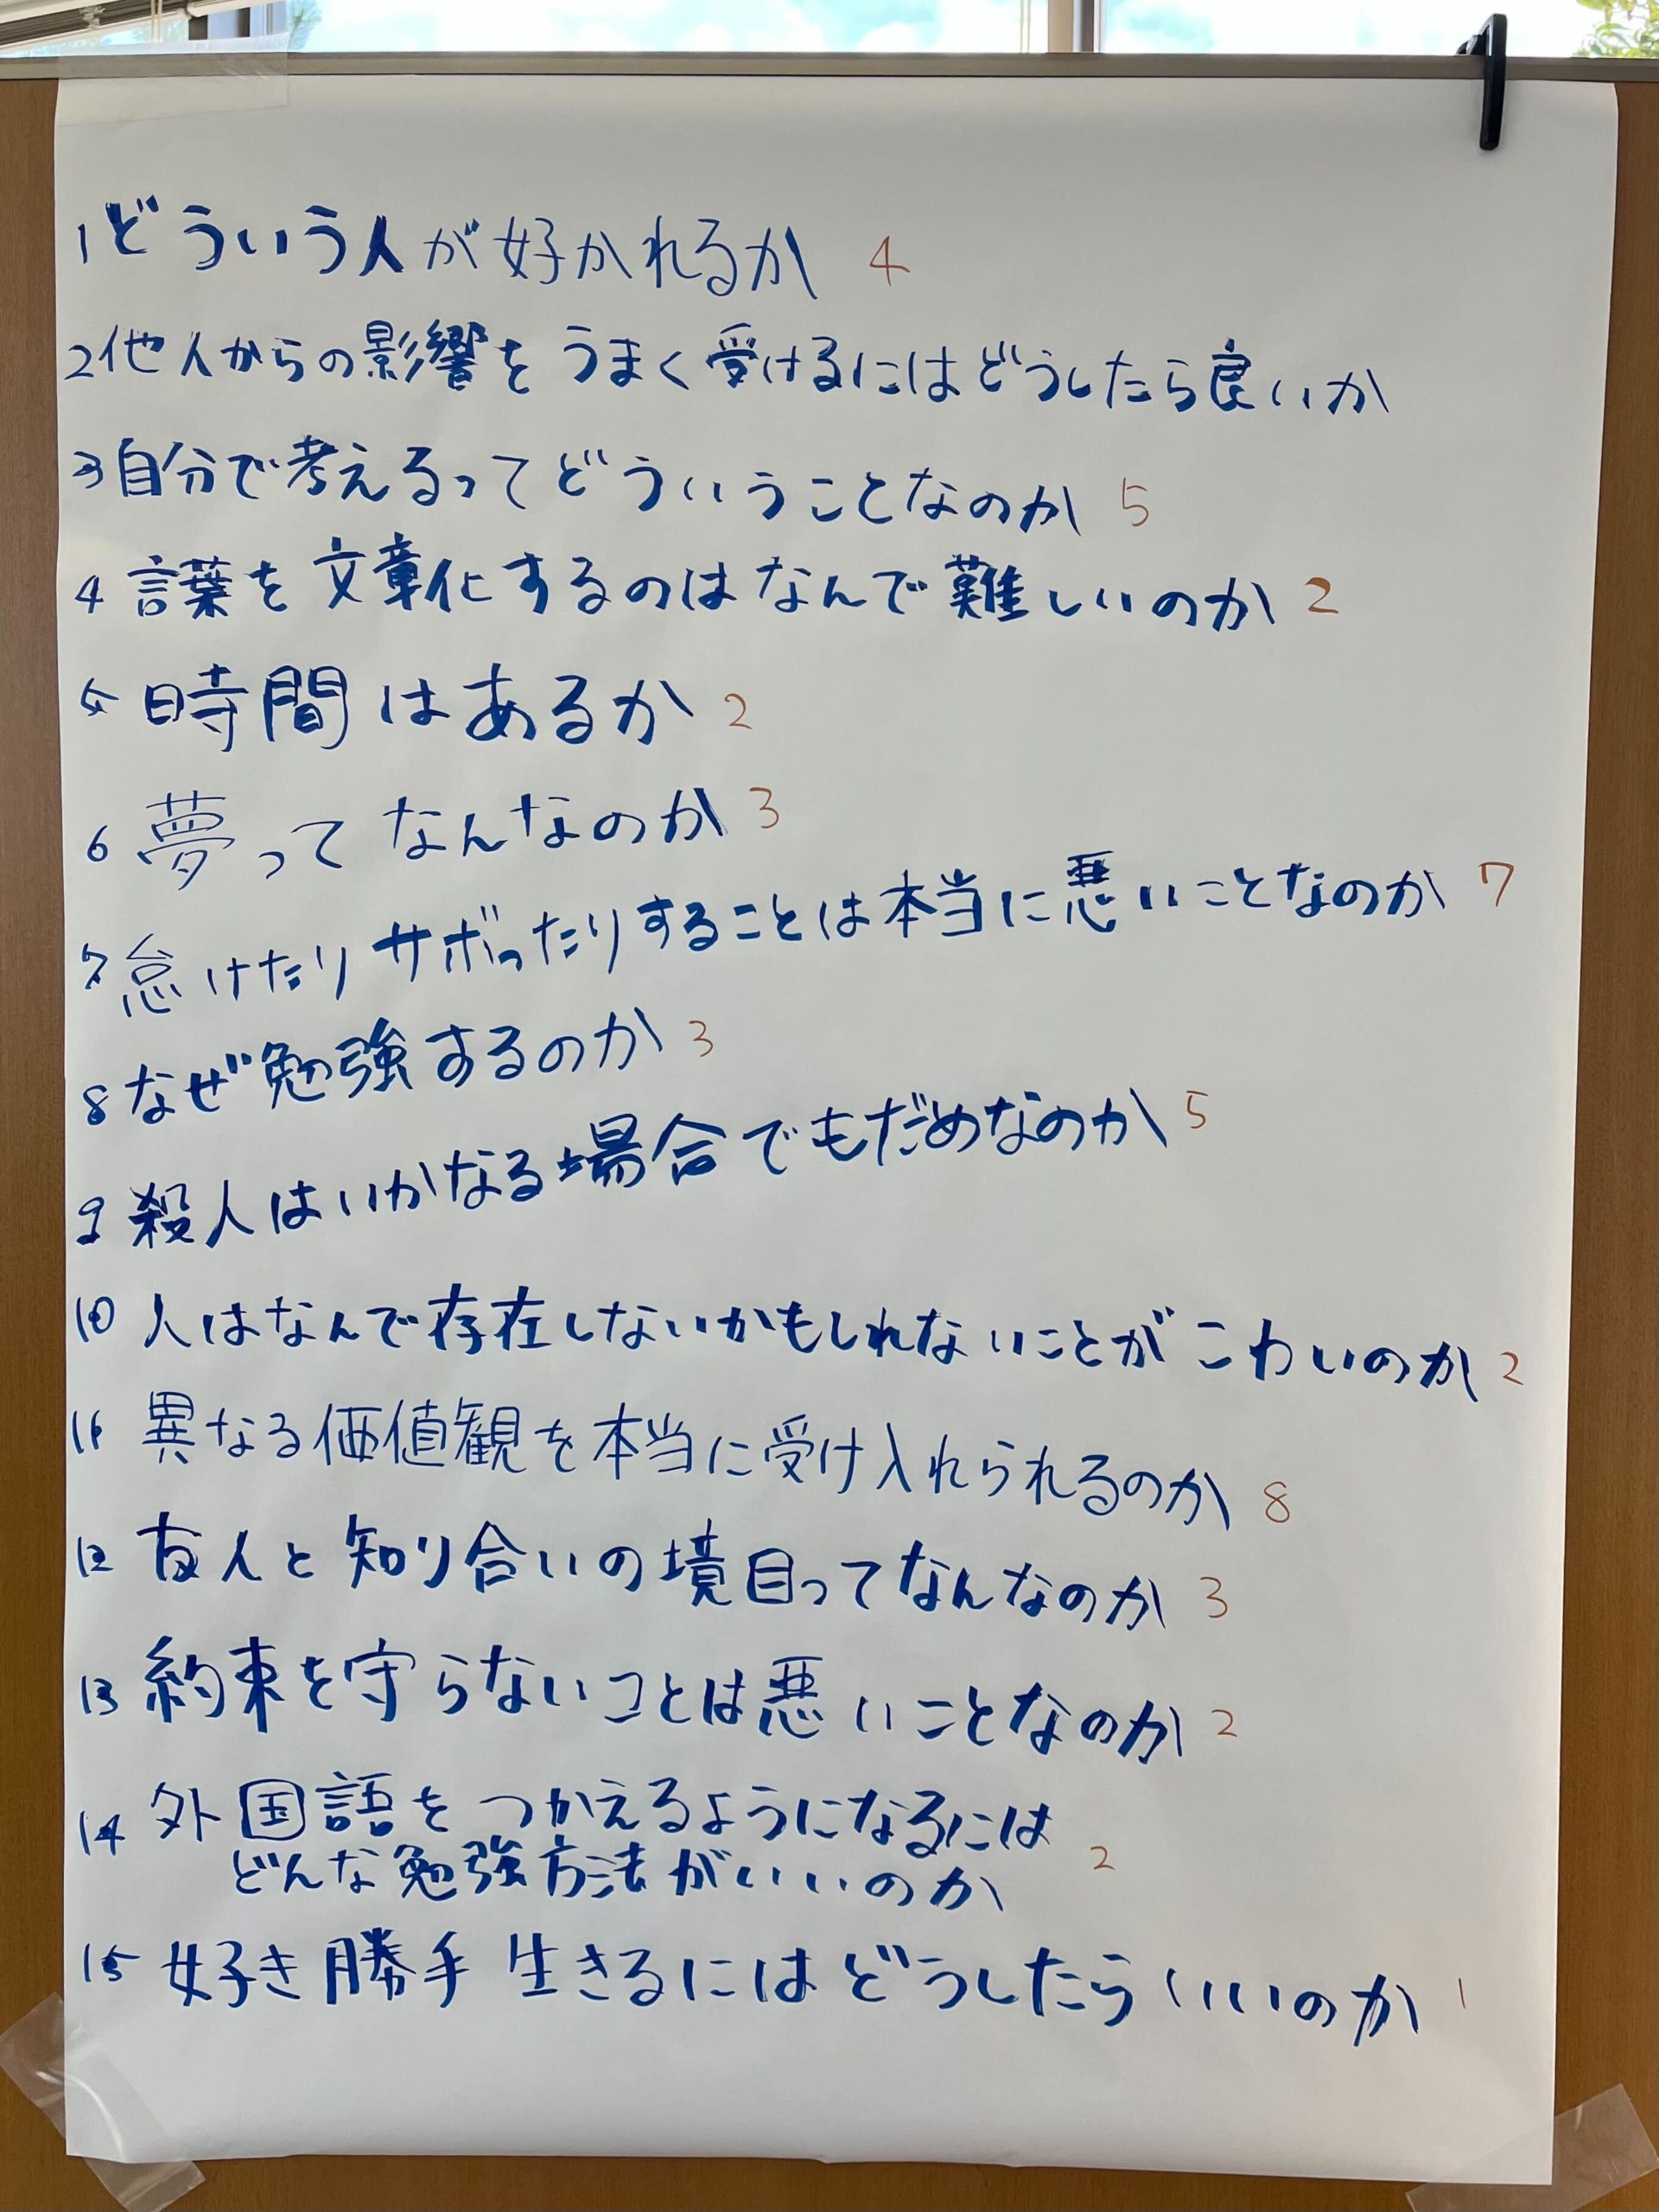 1 どういう人が好かれるか 4
2 他人からの影響をうまく受けるにはどうしたら良いか
3 自分で考えるってどういうことなのか 5
4 言葉を文章化するのはなんで難しいのか 2
5 時間はあるか 2
6 夢ってなんなのか 3
7 怠けたりサボったりすることは本当に悪いことなのか 7
8 なぜ勉強するのか 3
9 殺人はいかなる場合でもだめなのか 5
10 人はなんで存在しないかもしれないことがこわいのか 2
11 異なる価値観を本当に受け入れられるのか 8
12 友人と知り合いの境目ってなんなのか 3
13 約束を守らないことは悪いことなのか 2
14 外国語をつかえるようになるには
どんな勉強方法がいいのか 2
15 好き勝手生きるにはどうしたらいいのか 1